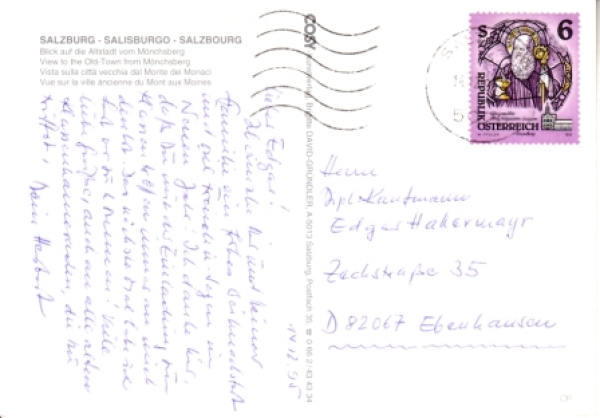 SALZBURG - SALISBURGO - SALZBOURG
Blick auf die Altstadt vom Mönchsberg
View to the Old-Town from Mönchsberg
Vista sulla città vecchia dal Monte dei Monaci
Vue sur la ville ancienne du Mont aux Moines
COSY
DAVID-GRÜNDLER, A 5013 Salzburg, Postfach 35 ☎ 0 66 2/43 43 34
S 6
REPUBLIK
ÖSTERREICH
14.12.95
Lieber Edgar!
Ich wünsche Dir und Deiner
Familie ein frohes Weihnachtsfest
und viel Freude und Segen im
Neuen Jahr! Ich danke Dir,
daß Du mit der Einladung zum
Klassentreffen an mich
Das nächste Mal
kommen! Viele
Grüße, auch an alle alten
Klassenkameraden, die Du
triffst, Dein Herbert
Herrn
Dipl. Kaufmann
Edgar Hakermayr
Zechstraße 35
D 82067 Ebenhausen